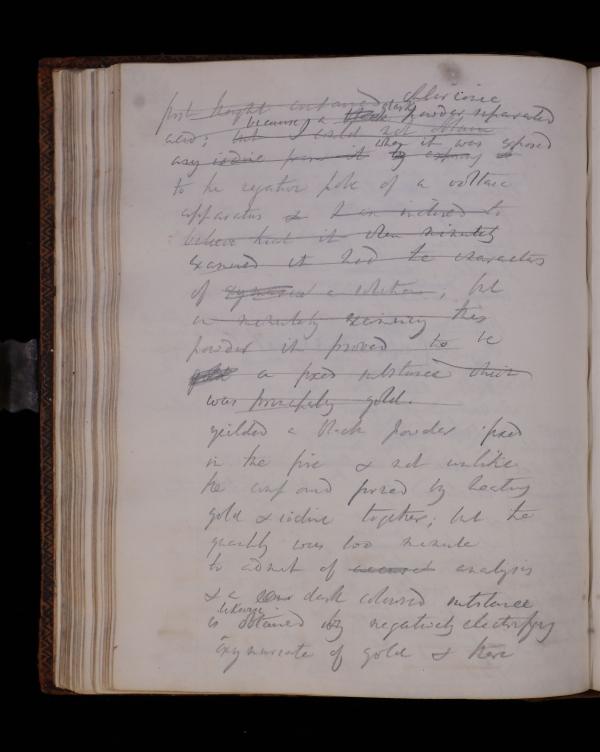 first thought contained chlorionic
because a dark powder separated
acid; but I could not obtain
when it was exposed
any iodine from it by exposing
to the negative pole of a voltaic
apparatus & I am inclined to
believe that it when minutely
examined it had the characters
of a solution; but
on minutely examining this
powder it proved to be
gold a fixed substance which
was principally gold.
yeilded a black powder fixed
in the fire & not unlike
the compound formed by heating
gold & iodine together; but the
quantity was too minute
to admit of accurate analysis
& a dark coloured substance
likewise
is obtained by negatively electrifying
oxymuriate of gold & there